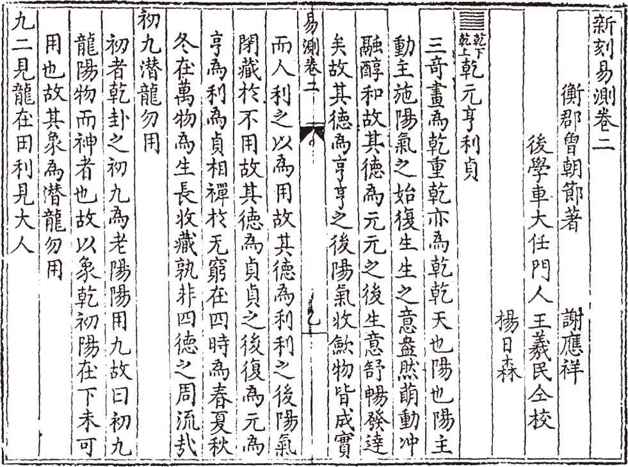 新刻易測卷二
衡郡曾朝節著
謝應祥
後學車大任門人王羲民仝校
楊日森
乾下乾上乾元亨利貞
三奇畫為乾重乾亦為乾乾天也陽也陽主
動主施陽氣之始復生生之意盎然萌動冲
融醇和故其德為元元之後生意舒暢發達
矣故其德為亨亨之後陽氣收歛物皆成實
易測卷二
乙
而人利之以為用故其德為利利之後陽氣
閉藏於不用故其德為貞貞之後復為元為
亨為利為貞相禪於无窮在四時為春夏秋
冬在萬物為生長收藏孰非四德之周流哉
初九潛龍勿用
初者乾卦之初九為老陽陽用九故曰初九
龍陽物而神者也故以象乾初陽在下未可
用也故其象為潛龍勿用
九二見龍在田利見大人